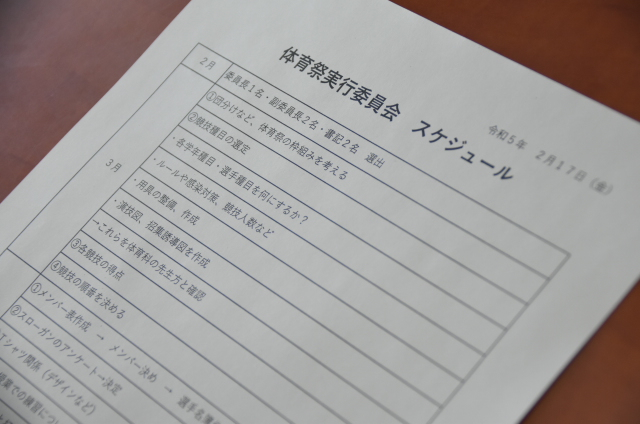 令和5年　2月17日（金）
体育祭実行委員会　スケジュール
2月
委員長1名・副委員長2名・書記2名　選出
3月
①団分けなど、体育祭の枠組みを考える
②競技種目の選定
・各学年種目・選手種目を何にするか？
・ルールや感染対策、競技人数など
・用具の整備、作成
・演技図、招集誘導図を作成
→これらを体育科の先生方と確認
③各競技の得点
④競技の順番を決める
①メンバー表作成　→　メンバー決め　→　選手名簿
②スローガンのアンケート→決定
Tシャツ関係（デザインなど）
授業での練習につい